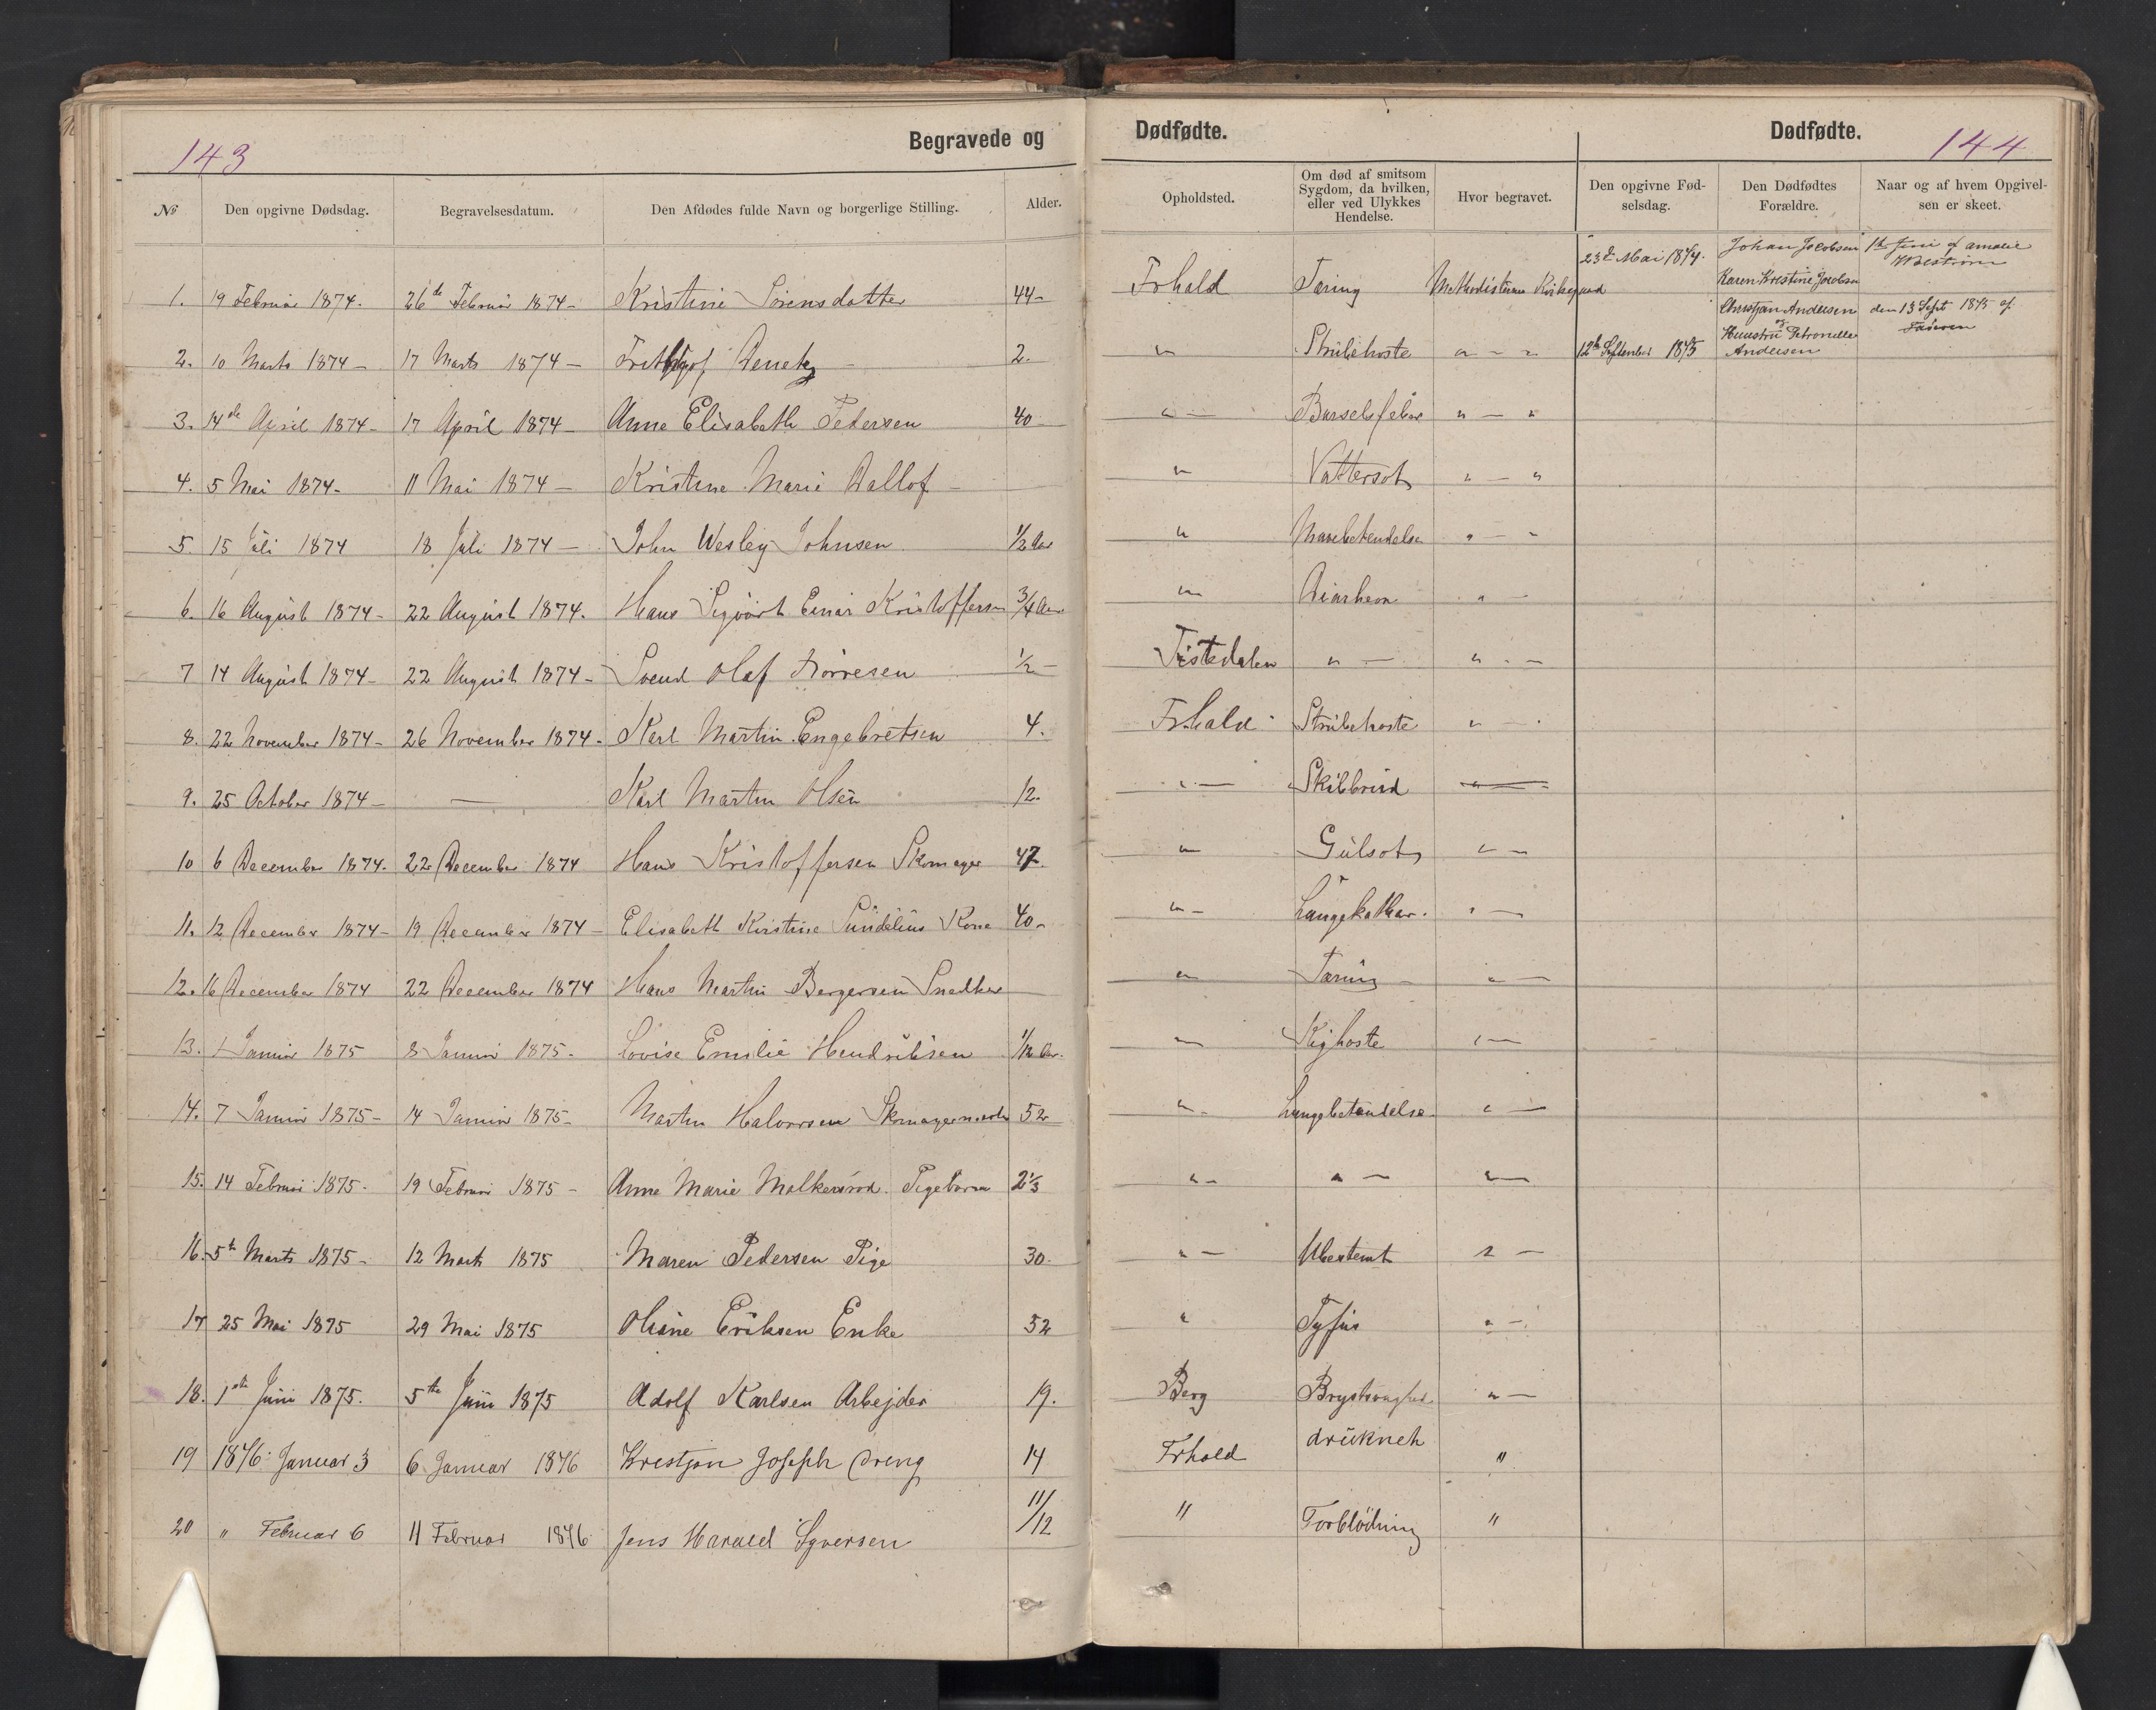 143
Begravede og
Dødfødte.
Dødfødte.
144
No
Den opgivne Dødsdag.
Begravelsesdatum.
Den Afdødes fulde Navn og borgerlige Stilling.
Alder.
Opholdsted.
Om død af smitsom Sygdom, da hvilken, eller ved Ulykkes Hendelse.
Hvor begravet.
Den opgivne Fødselsdag.
Den Dødfødtes Forældre.
Naar og af hvem Opgivelsen er skeet.
23de Mai 1874. Johan Jacobsen 1ste Juni af Amalie
Karen Kristine Jacobsen
1. 19 Februar 1874. 26th Februar 1874 - Kristine Sørensdatter 44 - Frhald Tæring Methodisternes Kirkegaard
Christjan Andersen den 13 Sept 1875 af
og
Petronelle
2. 10 Marts 1874 - 17 Marts 1874 - 2. " Strübehoste " - " 12te September 1875 Andersen
3. 14de April 1874 - 17 April 1874 - Anne Elisabeth Pedersen 40 - " - Barselsfeber " - "
4. 5 Mai 1874 - 11 Mai 1874 - Kristine Marie Dallof - " Vattersot " - "
5. 15 Juli 1874 18 Juli 1874 - John Wesley Johnsen 1/2 Aar " Mavebetendelse " - "
6. 16 August 1874 - 22 August 1874. Hans Sigvart Einar Kristoffersen 3/4 Aar " Diarhea " -
7 14 August 1874 - 22 August 1874 - Svend Olaf Torresen 1/2 - Tistedalen " - " - -
8. 22 November 1874 - 26 November 1874 - Karl Martin Engebretsen 4. Frhald - Strübehoste " - -
9. 25 October 1874 - - Karl Martin Olsen 12. " - Skibbrud " -
10 6 December 1874. 22 December 1874 Hans Kristoffersen Skomager 47. " Gulsot " -
11. 12 December 1874 - 19 December 1874 - Elisabeth Kirstine Sundelius Kone 40 - " - Lungekathar. " -
12. 16 December 1874 22 December 1874 Hans Martin Bergersen Snedker " Tæring - " -
13. 1 Januar 1875 8 Januar 1875 - Lovise Emilie Hendriksen 1/12 Aar. " Kighoste " -
14. 7 Januar 1875 - 14 Januar 1875 - Martin Halvorsen 52 " - Lungebetendelse " -
15. 14 Februar 1875 - 19 Februar 1875 - Anne Marie Pigebarn 2 1/3 " - " - " -
16. 5th Marts 1875 - 12 Marts 1875 Maren Pedersen Pige 30. " - Ubestemt " -
17 25 Mai 1875 29 Mai 1875 Oline Eriksen Enke 52 " Tyfus " -
18. 1ste Juni 1875. 5te Juni 1875 Adolf Karlsen Arbejder 19. Berg Brystsvaghed " -
19 1876: Januar 3 6 Januar 1876 Krestjan Joseph Dreng 14 Frhald drüknet "
20 " Februar 6 11 Februar 1876 Jens Harald Syversen 11/12 " Forblödning "